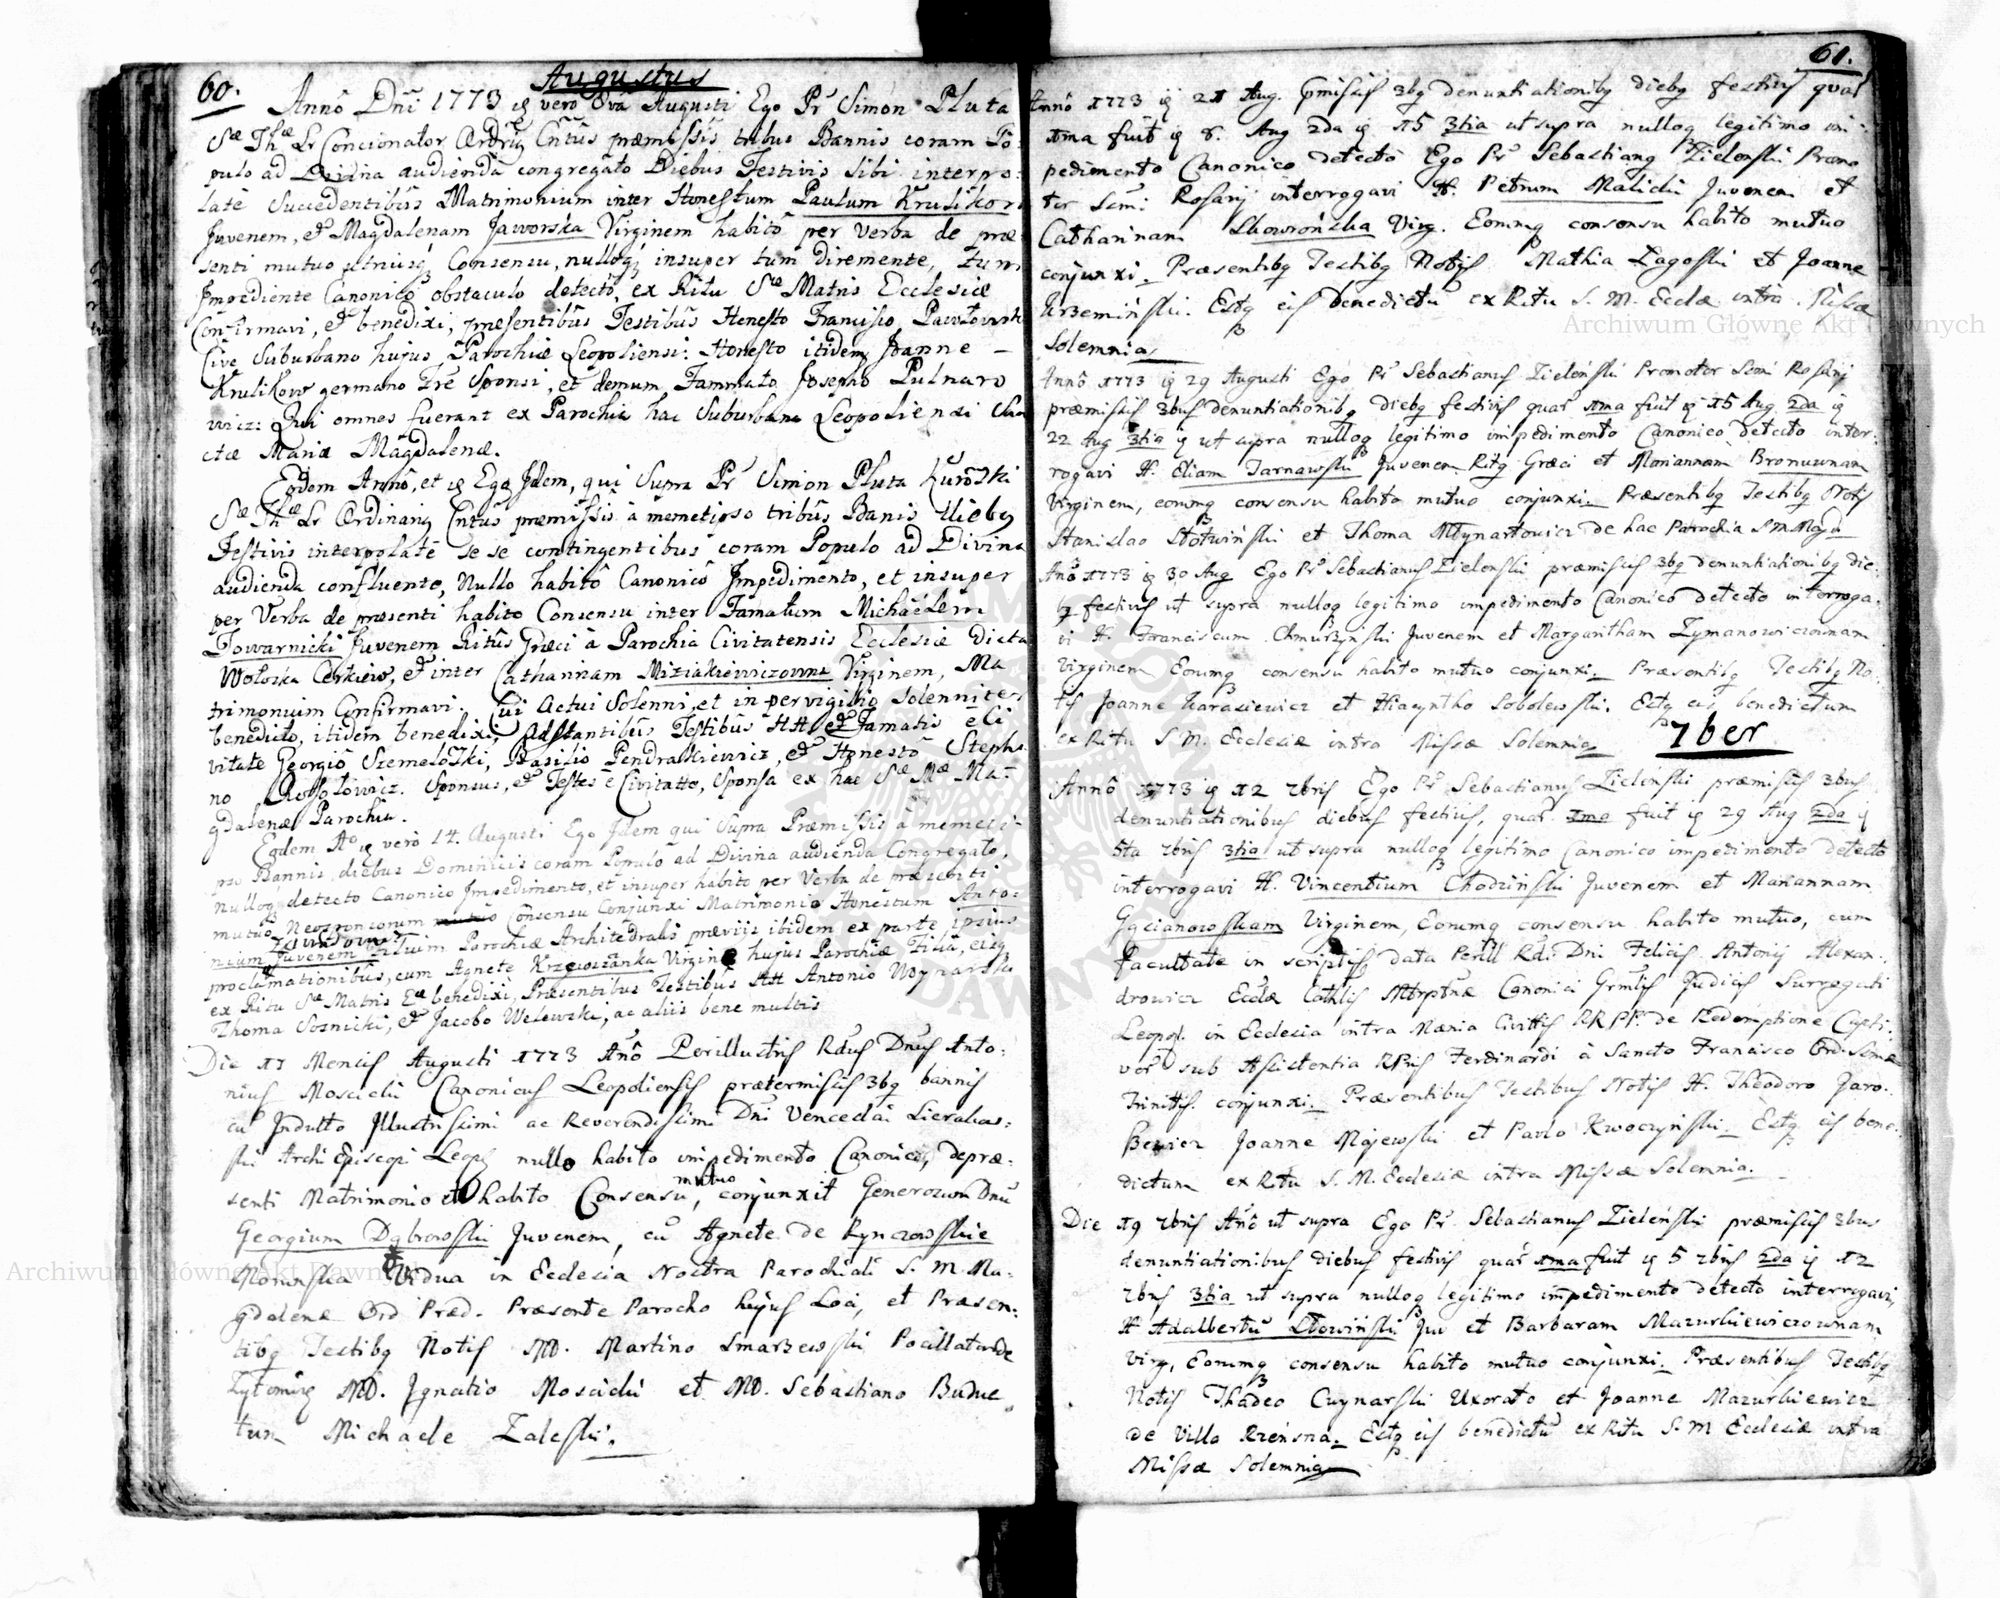 60.
Augustus
Anno Dni 1773 is vero 8va Augusti Ego Pr Simon Pluta
Sæ Thæ Lr Concionator Ordrig Cntus præmissis tribus Bannis coram Po:
pulo ad Divina audienda congregato Diebus Festivis sibi interpo:
late Succedentibus Matrimonium inter Honestum Paulum Krulikow
Juvenem, et Magdalenam Jaworska Virginem habito per Verba de præ:
senti mutuo utriusq Consensu, nulloq insuper tum dirimente, tum
Impediente Canonico obstaculo detecto, ex Ritu Sæ Matris Ecclesiæ
Confirmavi, et benedixi, præsentibus Testibus Honesto Francisco
Cive Suburbano hujus Parochiæ Leopoliensi: Honesto itidem Joanne –
Krulikow germano Fre Sponsi, et demum Fammato Josepho Pulnaro
wicz: Qui omnes fuerant ex Parochia hac Suburbana Leopoliensi San
ctæ Mariæ Magdalenæ.
Eodem Anno, et is Ego Idem, qui Supra Pr Simon Pluta
Sæ Thæ Lr Ordinarig Cntus præmissis a memetipso tribus Banis diebg
Festivis interpolate se se contingentibus coram Populo ad Divina
audienda confluente, Nullo habito Canonico Impedimento, et insuper
per Verba de præsenti habito Consensu inter Famatum Michaelem
Towarnicki Juvenem Ritus Græci a Parochia Civitatensis Ecclesiæ dicta
Wołoska Cerkiew, et inter Catharinam Miziakiewiczowna Virginem, Ma
trimonium Confirmavi. Cui Actui Solenni, et in pervigilio Solenniter
benedixi, itidem benedixi, Adstantibus Testibus HH et Famatis e Ci
vitate Georgio Szemelozki, Basilio Pendrakiewicz, et Honesto Stepha
no Sponsus, et Testes e Civitatte, Sponsa ex hac Sæ Mæ Ma-
gdalenæ Parochia.
Eodem Ao is vero 14 Augusti Ego Idem qui Supra Præmissis a memeti-
pso Bannis, diebus Dominicis coram Populo ad Divina audienda Congregato,
nulloq detecto Canonico Impedimento, et insuper habito per Verba de præsenti
mutuo Neosponsorum Consensu Conjunxi Matrimonio Honestum Anto:
nium Juvenem Filium Parochiæ Architedralis præviis ibidem ex parte ipsius
proclamationibus, cum Agnete Krzewczanka Virgine hujus Parochiæ Filia, eisq
ex Ritu Sæ Matris Eæ benedixi, Præsentibus Testibus HH Antonio
Thoma Sosnicki, et Jacobo Welewski, ac aliis bene multis
Die 17 Mensis Augusti 1773 Ano Perillustris Rdus Dnus Anto:
nius Moscicki Canonicus Leopoliensis prætermissis 3bg bannis
cu Indulto Illustrissimi ac Reverendissimi Dni Venceslai Sierakow:
ski Archi Episcopi Leopo nullo habito impedimento Canonico, depræ:
senti Matrimonio et habito Consensu mutuo, conjunxit Generosum Dnu
Georgium Dąbrowski Juvenem, cu Agnete de Rynczowskie
Vidua in Ecclesia Nostra Parochiali S. M. Ma:
gdalenæ Ord Præd. Præsente Parocho hujus Loci, et Præsen:
tibg Testibg Notis MD. Martino Smarzewski Pocillatorde
MD. Ignatio Moscicki et MD. Sebastiano Budue
tun Michaele Zaleski.
61.
Anno 1773 is 21 Aug. pmissis 3bg denuntiationibg diebg festivis quar
1ma fuit is 8. Aug 2da is 15 3tia ut supra nulloq legitimo im:
pedimento Canonico detecto Ego Pr Sebastiang Zielenski Promo
tor Ssmi Rosarij interrogavi H. Petrum Malicki Juvenem et
Catharinam Skowrońska Virg. Eorumq consensu habito mutuo
conjunxi. Præsentibg Testibg Notis Mathia Łagoski et Joanne
Urzemiński. Estq eis benedictu ex Ritu S. M. Ecclæ intra Missæ
Solemnia
Anno 1773 is 29 Augusti Ego Pr Sebastianus Zieleński Promotor Ssmi Rosarij
præmissis 3bus denuntiationibg diebg festivis quar 1ma fuit is 15 Aug 2da is
22 Aug 3tia is ut supra nulloq legitimo impedimento Canonico detecto inter:
rogavi H. Eliam Tarnawski Juvenem Ritg Græci et Mariannam Bronuwnam
Virginem, eorumq consensu habito mutuo conjunxi. Præsentibg Testibg Notis
Stanislao Słotwiński et Thoma Młynartowicz de hac Parochia S M Magd
Ano 1773 is 30 Aug Ego Pr Sebastianus Zielenski præmissis 3bg denuntiationibg die:
g festivis ut supra nulloq legitimo impedimento Canonico detecto interroga:
vi H. Franciscum Chmurzynski Juvenem et Margaritham Zymanowiczownam
Virginem Eorumq consensu habito mutuo conjunxi. Præsentibg Testibg No:
tis Joanne Karasiewicz et Hiacyntho Sobolewski. Estq eis benedictum
ex Ritu S. M. Ecclesiæ intra Missæ Solemnia
7ber
Anno 1773 is 12 7bris Ego Pr Sebastianus Zieleński præmissis 3bus
denuntiationibus diebus festivis, quar 1ma fuit is 29 Aug 2da is
5ta 7bris 3tia ut supra nulloq legitimo Canonico impedimento detecto
interrogavi H. Vincentium Chodziński Juvenem et Mariannam
Gącianowskam Virginem, Eorumq consensu habito mutuo, cum
facultate in scriptis data Perill Rdi Dni Felicis Antonij Alexan:
drowicz Ecclæ Cathlis Mtrptnæ Canonici Grnlis Judicis Surrogati
Leopol. in Ecclesia intra Mænia Civittis RRPP. de Redemptione Capti:
vor sub Assistentia RPris Ferdinandi à Sancto Francisco Ord. Ssmæ
Trinittis. conjunxi. Præsentibus Testibus Notis H. Theodoro Jaro:
Bewicz Joanne Majewski et Paulo Kwoczynski. Estq eis bene:
dictum ex Ritu S. M. Ecclesiæ intra Missæ Solemnia.
Die 19 7bris Ano ut supra Ego Pr. Sebastianus Zieleński præmissis 3bus
denuntiationibus diebus festivis quar 1ma fuit is 5 7bris 2da is 12
7bris 3tia ut supra nulloq legitimo impedimento detecto interrogavi,
H Adalbertu Słowiński Juv et Barbaram Mazurkiewiczownam
Virg, Eorumq consensu habito mutuo conjunxi. Præsentibus Testibg
Notis Thadeo Cuynarski Uxorato et Joanne Mazurkiewicz
de Villa Rzensna. Estq eis benedictu ex Ritu S. M Ecclesiæ intra
Missæ Solemnia
Archiwum Główne Akt Dawnych
Archiwum Główne Akt Dawnych